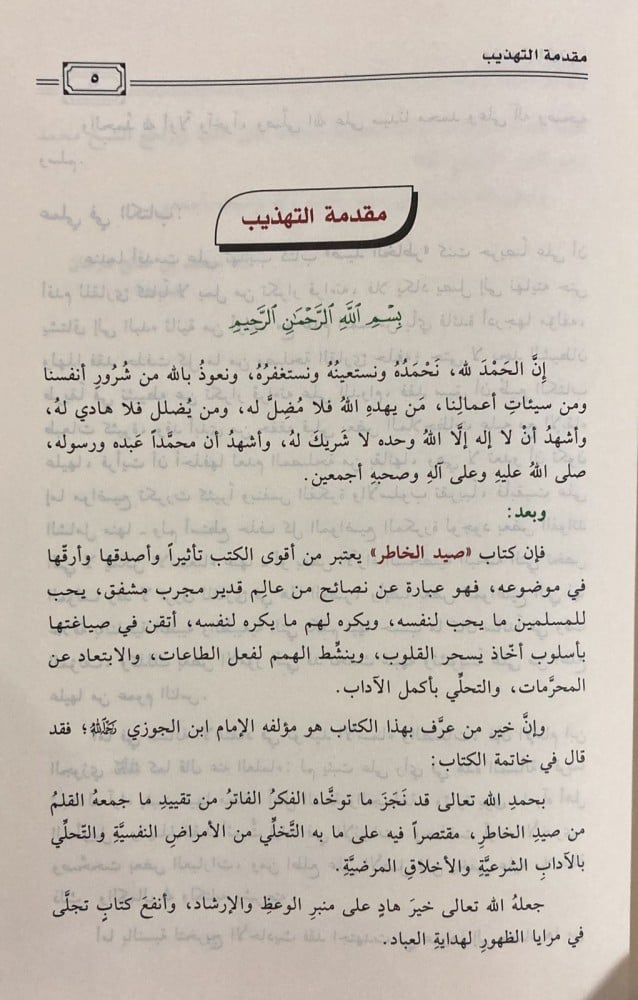 مقدمة التهذيب
٥
مقدمة التهذيب
بِسْمِ اللَّهِ الرَّحْمَٰنِ الرَّحِيمِ
إِنَّ الحَمْدَ لله، نَحْمَدُهُ ونستعينُهُ ونستغفرُهُ، ونعوذُ بالله من شُرُورِ أنفسنا
ومن سيئاتِ أعمالِنا، مَن يهدِهِ اللهُ فلا مُضِلَّ له، ومن يُضلل فلا هادي لهُ،
وأشهدُ أنْ لا إله إلَّا اللهُ وحده لا شَريكَ لهُ، وأشهدُ أن محمَّداً عَبده ورسوله،
صلى اللهُ عليهِ وعلى آلهِ وصحبهِ أجمعين.
وبعد:
فإن كتاب «صيد الخاطر» يعتبر من أقوى الكتب تأثيراً وأصدقها وأرقّها
في موضوعه، فهو عبارة عن نصائح من عالِم قدير مجرب مشفق، يحب
للمسلمين ما يحب لنفسه، ويكره لهم ما يكره لنفسه، أتقن في صياغتها
بأسلوب أخّاذ يسحر القلوب، وينشِّط الهمم لفعل الطاعات، والابتعاد عن
المحرَّمات، والتحلِّي بأكمل الآداب.
وإنَّ خير من عرَّف بهذا الكتاب هو مؤلفه الإمام ابن الجوزي رَحِمَهُ اللهُ؛ فقد
قال في خاتمة الكتاب:
بحمدِ الله تعالى قد نَجَزَ ما توخَّاه الفكرُ الفاترُ من تقييدِ ما جمعهُ القلمُ
من صيدِ الخاطرِ، مقتصراً فيه على ما به التَّخلِّي من الأمراضِ النفسيَّةِ والتّحلِّي
بالآدابِ الشرعيَّةِ والأخلاقِ المرضيَّةِ.
جعلهُ الله تعالى خيرَ هادٍ على منبرِ الوعظِ والإرشاد، وأنفعَ كتابٍ تجلَّى
في مرايا الظهورِ لهدايةِ العباد.